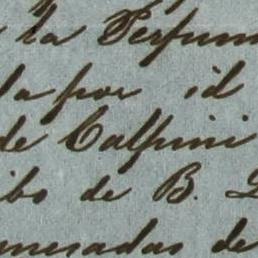 la Perfum
la por id
de Calpini
ibo de B.
mesadas de